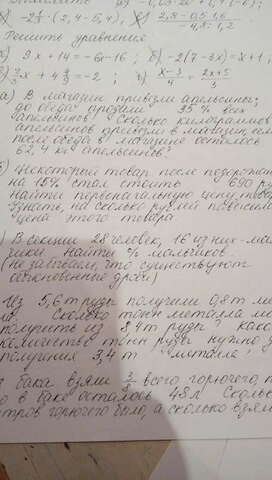 б) -2 · (2,4 - 5,4),
Решить уравнения
а) 9x + 14 = -6x - 16; б) -2(7 - 3x) = x + 1;
x + 4 = -2; г) (x-3)/4 = (2x+5)/3
а) В магазин привезли апельсины,
до обеда продали 35% всех
апельсинов. Сколько килограммов
апельсинов привезли в магазин, если
после обеда в магазине осталось
62,4 кг апельсинов?
Некоторый товар после подорожания
на 15% стал стоить 690 р
найти первоначальную цену товара
узнать, на сколько рублей повысилась
цена этого товара
В секции 28 человек, 16 из них - маль
чики найти % мальчиков.
(не забываем, что существуют
обыкновенные дроби)
Из 5,6 т руды получили 0,8 т ме
Сколько тонн металла мож
получить из 8,4 т руды? како
количество тонн руды нужно д
получения 3,4 т металла
бака взяли всего горючего, п
о в баке осталось 48 л Сколь
тров горючего было, а сколько взял